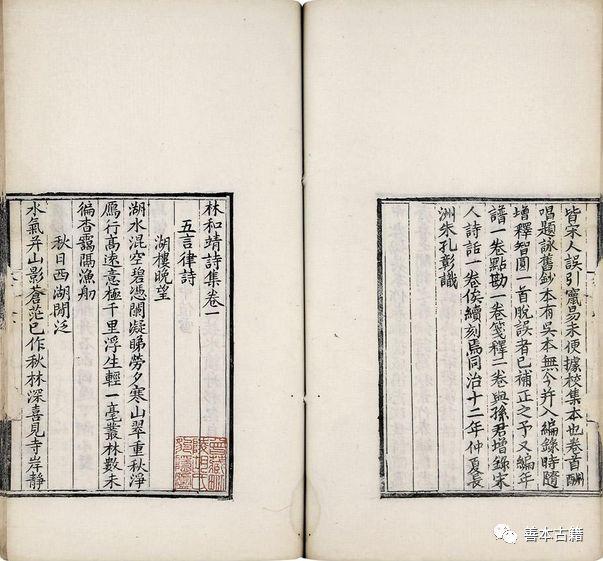 皆宋人誤引竄易未便據校集本也卷首酬
唱題詠舊鈔本有吳本無今并入編錄時隨
增釋智圓一首脫誤者已補正之予又編年
譜一卷點勘一卷箋釋二卷與孫君增錄宋
人詩話一卷俟續刻焉同治十二年仲夏長
洲朱孔彰識
林和靖詩集卷一
五言律詩
湖樓晚望
湖水混空碧憑闌凝睇勞夕寒山翠重秋淨
鴈行高遠意極千里浮生輕一毫叢林數未
徧杳靄隔漁舠
秋日西湖閒泛
水氣并山影蒼茫已作秋林深喜見寺岸靜
善本古籍